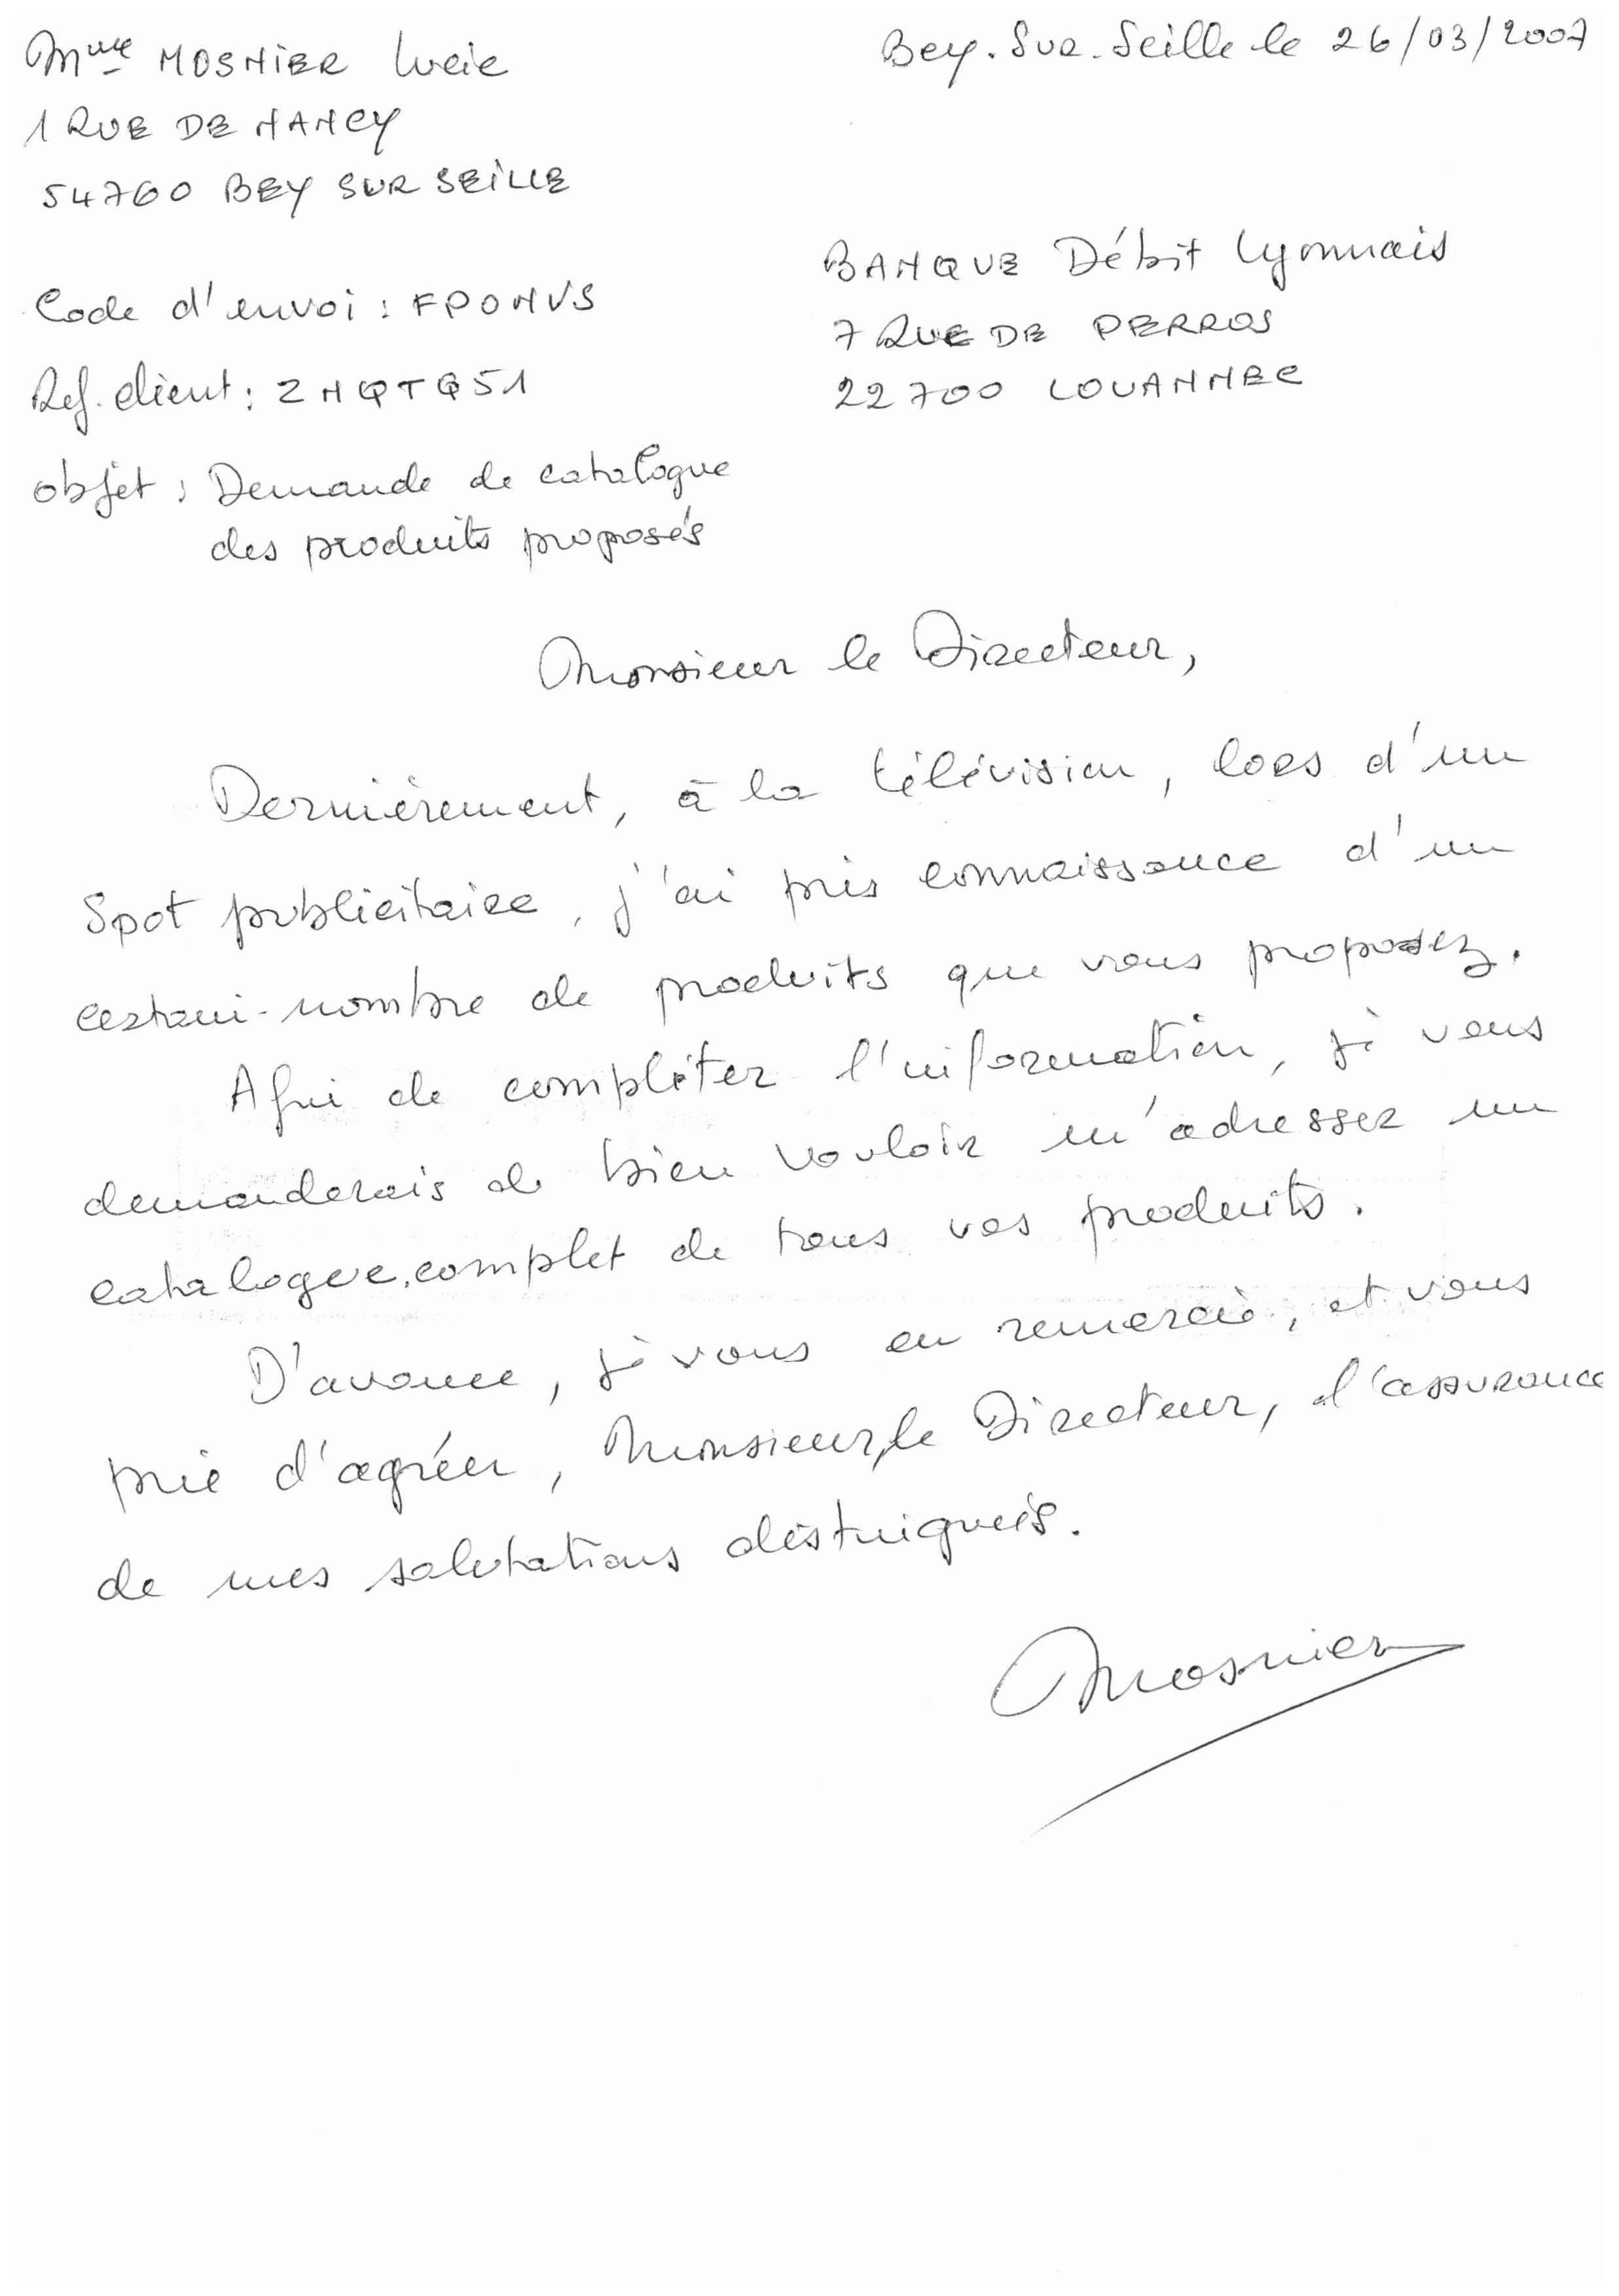 Mme MOSNIER Lucie
1 RUE DE NANCY
54760 BEY SUR SEILLE
Bey. Sur. Seille le 26/03/2007
Code d'envoi : FPONVS
Ref. client : ZNQTQ51
objet : Demande de catalogue
des produits proposés
BANQUE Débit Lyonnais
7 RUE DE PERROS
22700 LOUANNEC
Monsieur le Directeur,
Dernièrement, à la télévision, lors d'un
Spot publicitaire, j'ai pris connaissance d'un
certain nombre de produits que vous proposez.
Afin de compléter l'information, je vous
demanderais de bien vouloir m'adresser un
catalogue complet de tous vos produits.
D'avance, je vous en remercie, et vous
prie d'agréer, Monsieur, le Directeur, l'assurance
de mes salutations distinguées.
Mosnier